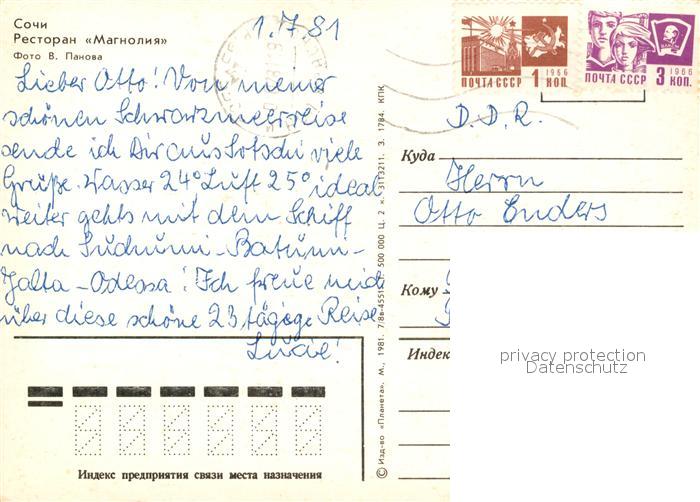 Сочи
Ресторан «Магнолия»
Фото В. Панова
1.7.81
Lieber Otto! Von meiner
schönen Schwarzmeerreise
sende ich Dir aus Sotschi viele
Grüße. Wasser 24° Luft 25° ideal
weiter gehts mit dem Schiff
nach Suchumi - Batumi -
Jalta - Odessa! Ich freue mich
über diese schöne 23 tägige Reise
Luzie!
ПОЧТА СССР 1 1966 КОП.
ПОЧТА СССР 3 1966 КОП.
D.D.R.
Куда
Herrn
Otto Enders
Кому
Индек
privacy protection
Datenschutz
© Изд-во «Планета». М., 1981. 500 000 Ц. 2 к. 3113211. З. 1784. КПК
Индекс предприятия связи места назначения